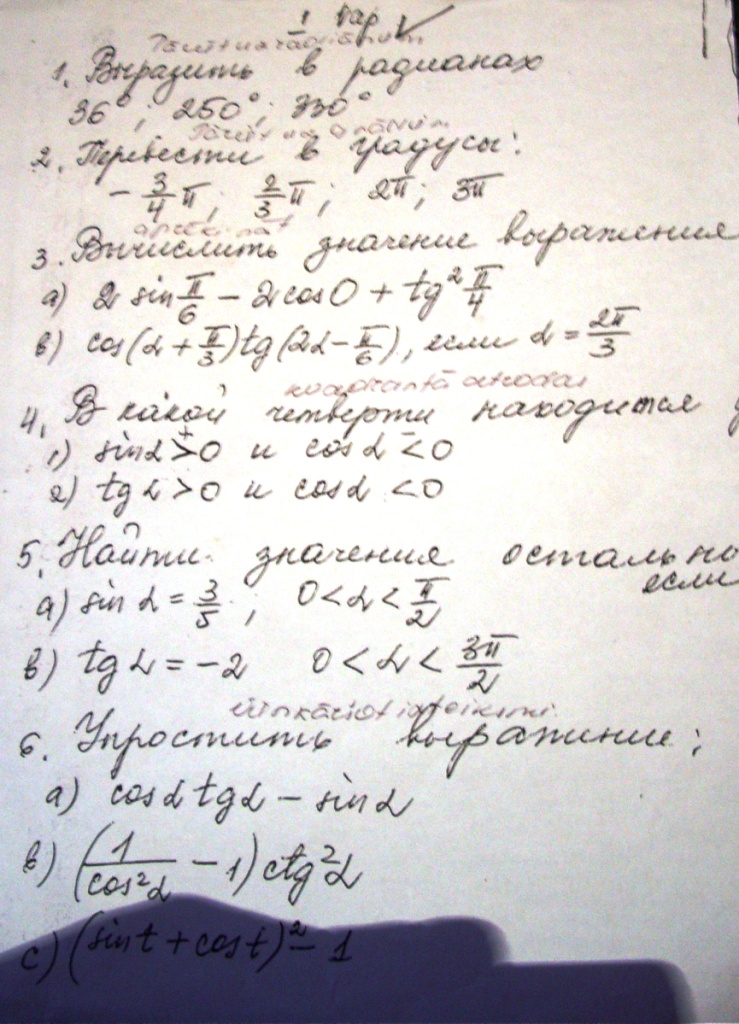 1 вар
1. Выразить в радианах
36°; 250°; 330°
2. Перевести в градусы:
- 3/4 π; 2/3 π; 2π; 3π
3. Вычислить значение выражения
а) 2 sin π/6 - 2cos0 + tg² π/4
в) cos(α + π/3)tg(2α - π/6), если α = 2π/3
kvadrantā atrodas
4. В какой четверти находится
1) sinα > 0 и cosα < 0
+ -
2) tgα > 0 и cosα < 0
5. Найти значения остально
если
а) sin α = 3/5, 0 < α < π/2
в) tgα = -2 0 < α < 3π/2
6. Упростить выражение;
а) cosα tgα - sinα
в) (1/cos²α - 1) ctg²α
c) (sint + cost)² - 1